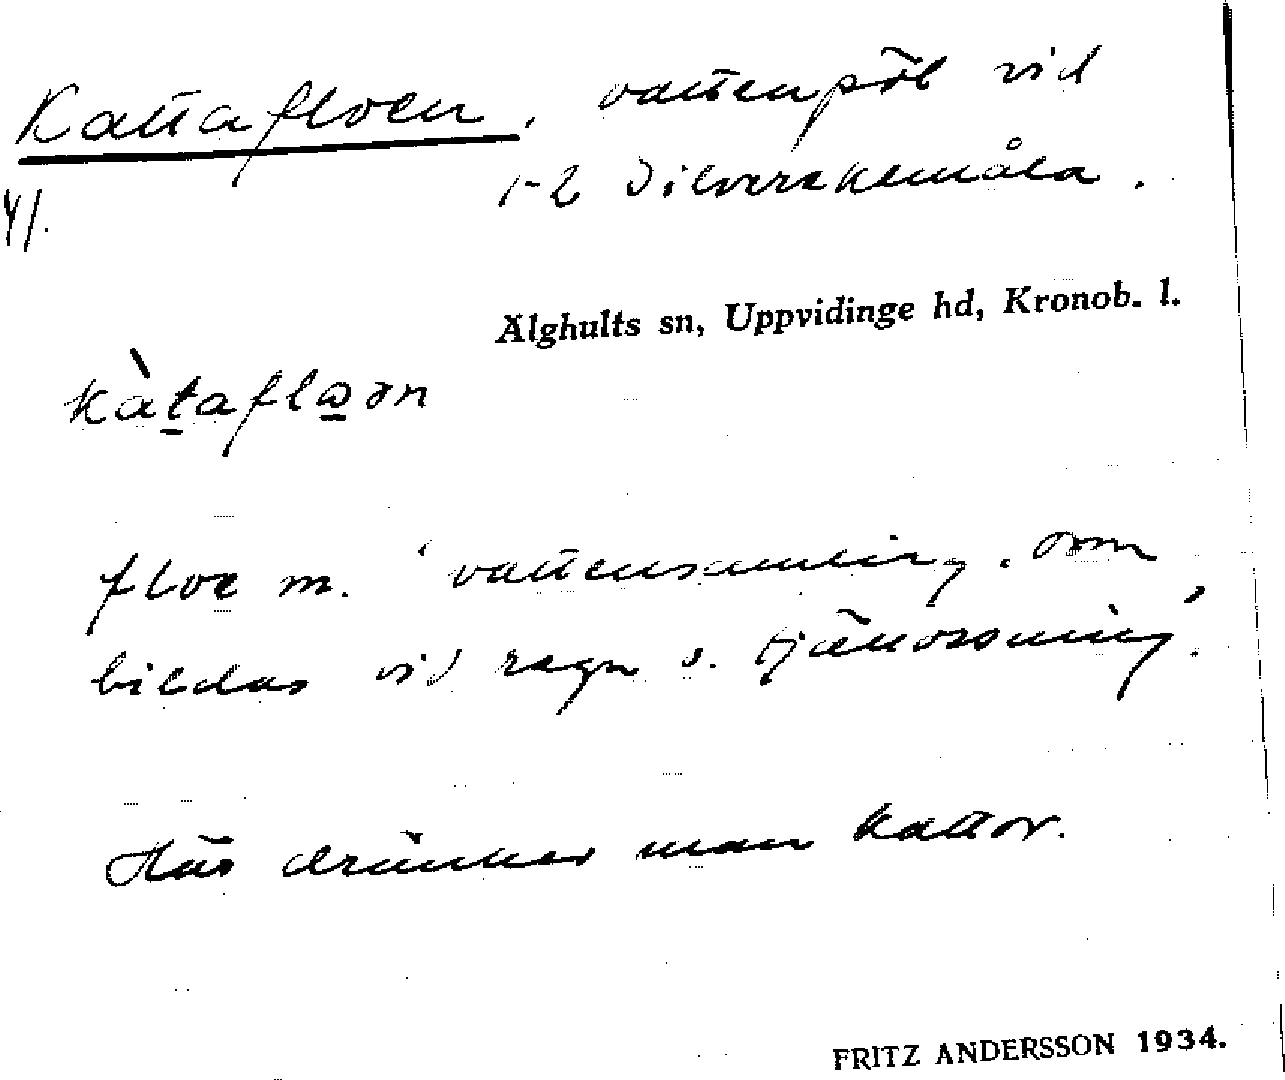 Kattafloen, vattenpöl vid
4/. 1-2 Silverekemåla.
Älghults sn, Uppvidinge hd, Kronob. l.
kàtaflωən
floe m. 'vattensamling, som
bildas vid regn o. tjällossning'.
Här dränker man kattor.
FRITZ ANDERSSON 1934.